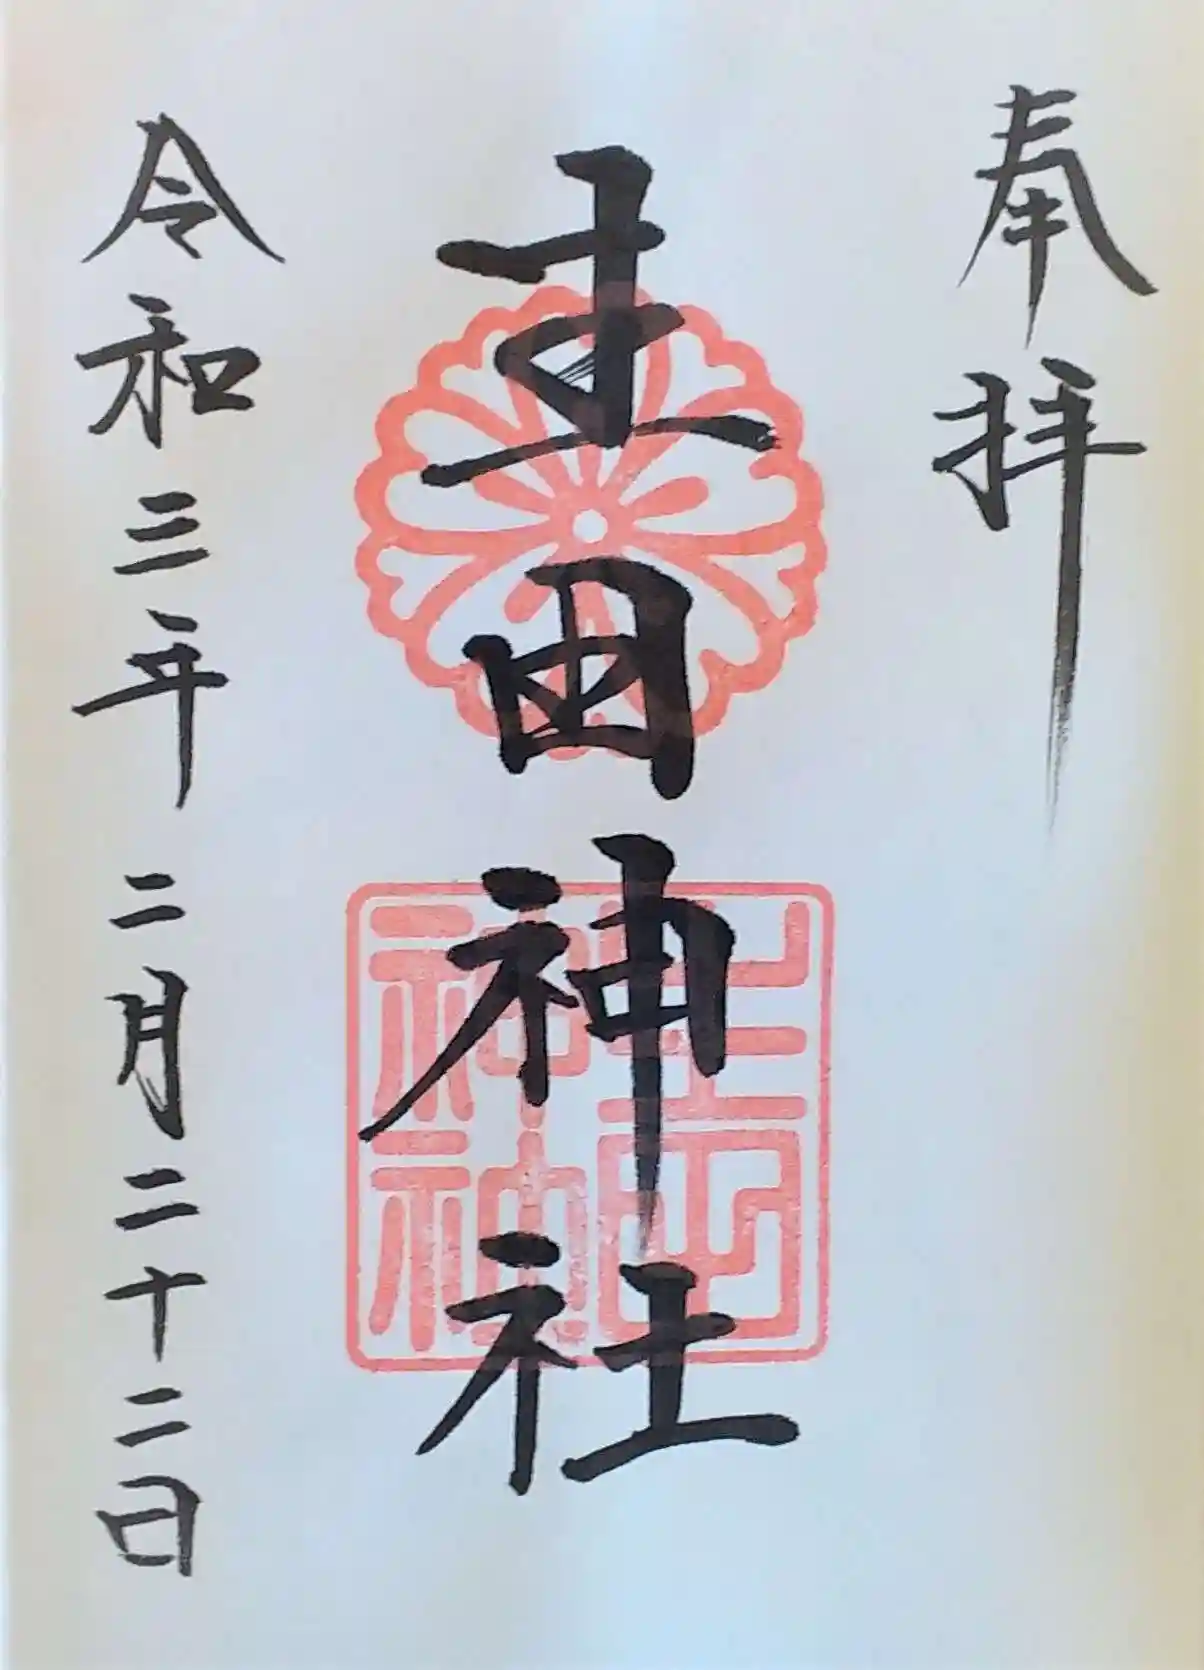 奉拝
生田神社
令和三年二月二十二日
生田神社